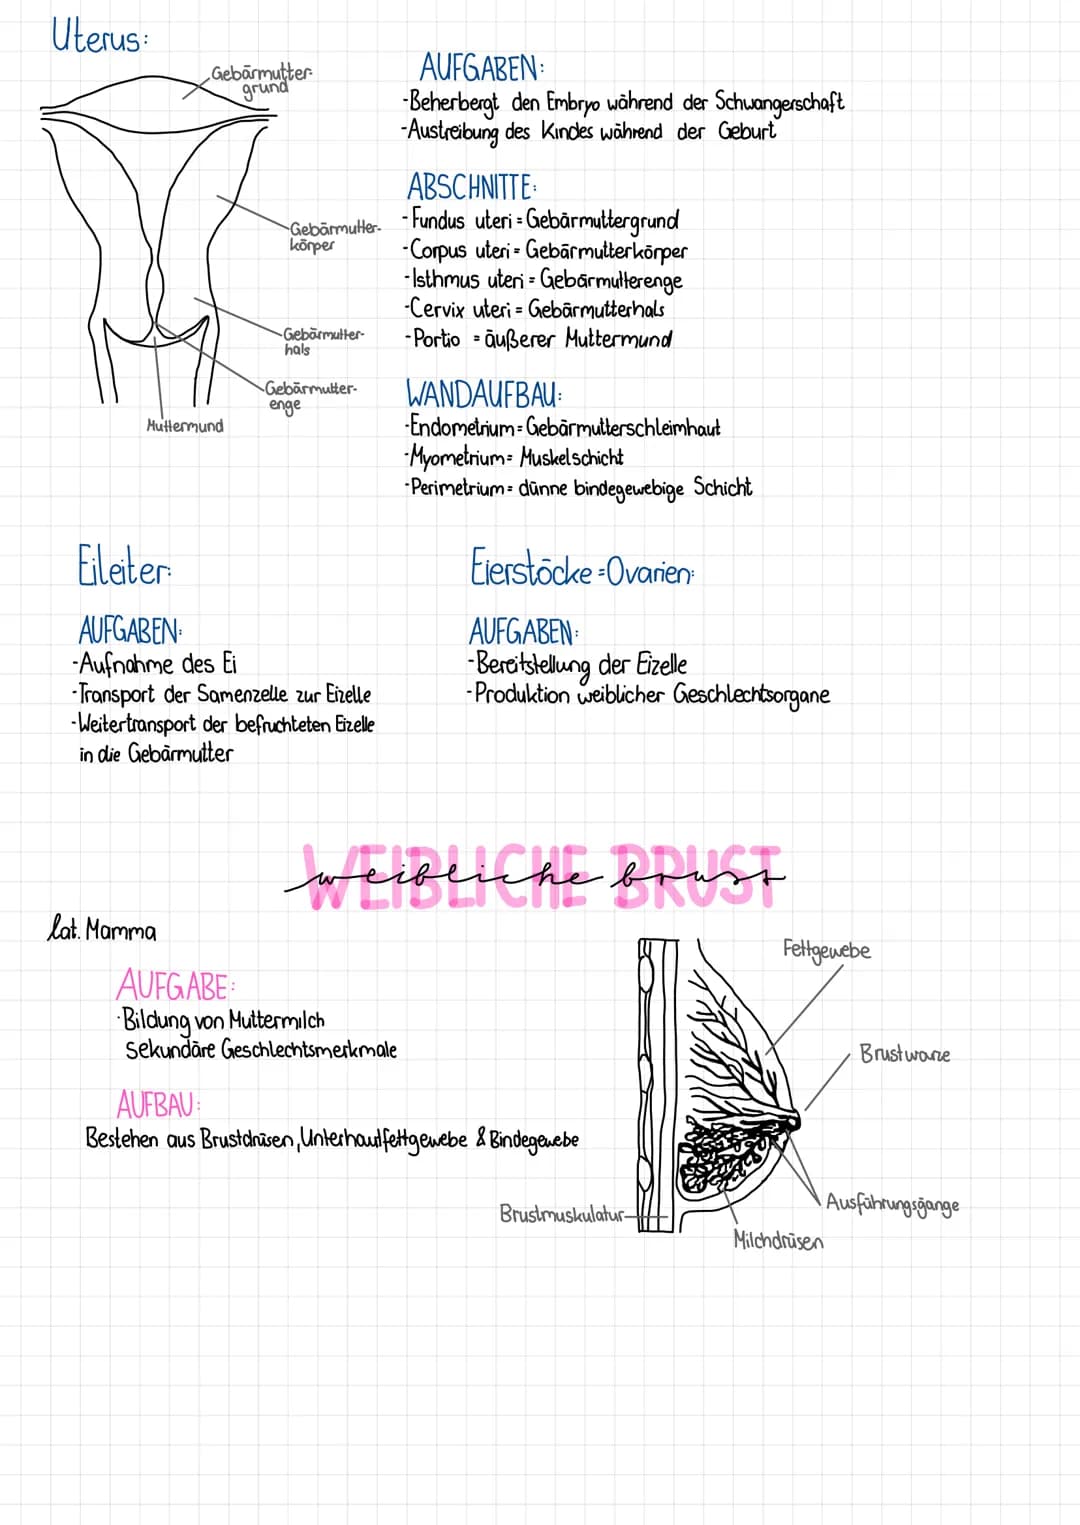 Uterus:
Gebärmutter-
grund
Gebärmutter-
körper
Gebärmutter-
hals
Gebärmutter-
enge
Muttermund
AUFGABEN:
-Beherbergt den Embryo während der Schwangerschaft
-Austreibung des Kindes während der Geburt
ABSCHNITTE:
-Fundus uteri = Gebärmuttergrund
-Corpus uteri = Gebärmutterkörper
-Isthmus uteri = Gebärmutterenge
-Cervix uteri = Gebärmutterhals
-Portio = äußerer Muttermund
WANDAUFBAU:
-Endometrium = Gebärmutterschleimhaut
-Myometrium = Muskelschicht
-Perimetrium = dünne bindegewebige Schicht
Eileiter:
AUFGABEN:
-Aufnahme des Ei
-Transport der Samenzelle zur Eizelle
-Weitertransport der befruchteten Eizelle
in die Gebärmutter
Eierstöcke = Ovarien:
AUFGABEN:
-Bereitstellung der Eizelle
-Produktion weiblicher Geschlechtsorgane
WEIBLICHE BRUST
weibliche brust
lat. Mamma
AUFGABE:
·Bildung von Muttermilch
Sekundäre Geschlechtsmerkmale
AUFBAU:
Bestehen aus Brustdrüsen, Unterhautfettgewebe & Bindegewebe
Fettgewebe
Brustwarze
Ausführungsgänge
Brustmuskulatur
Milchdrüsen